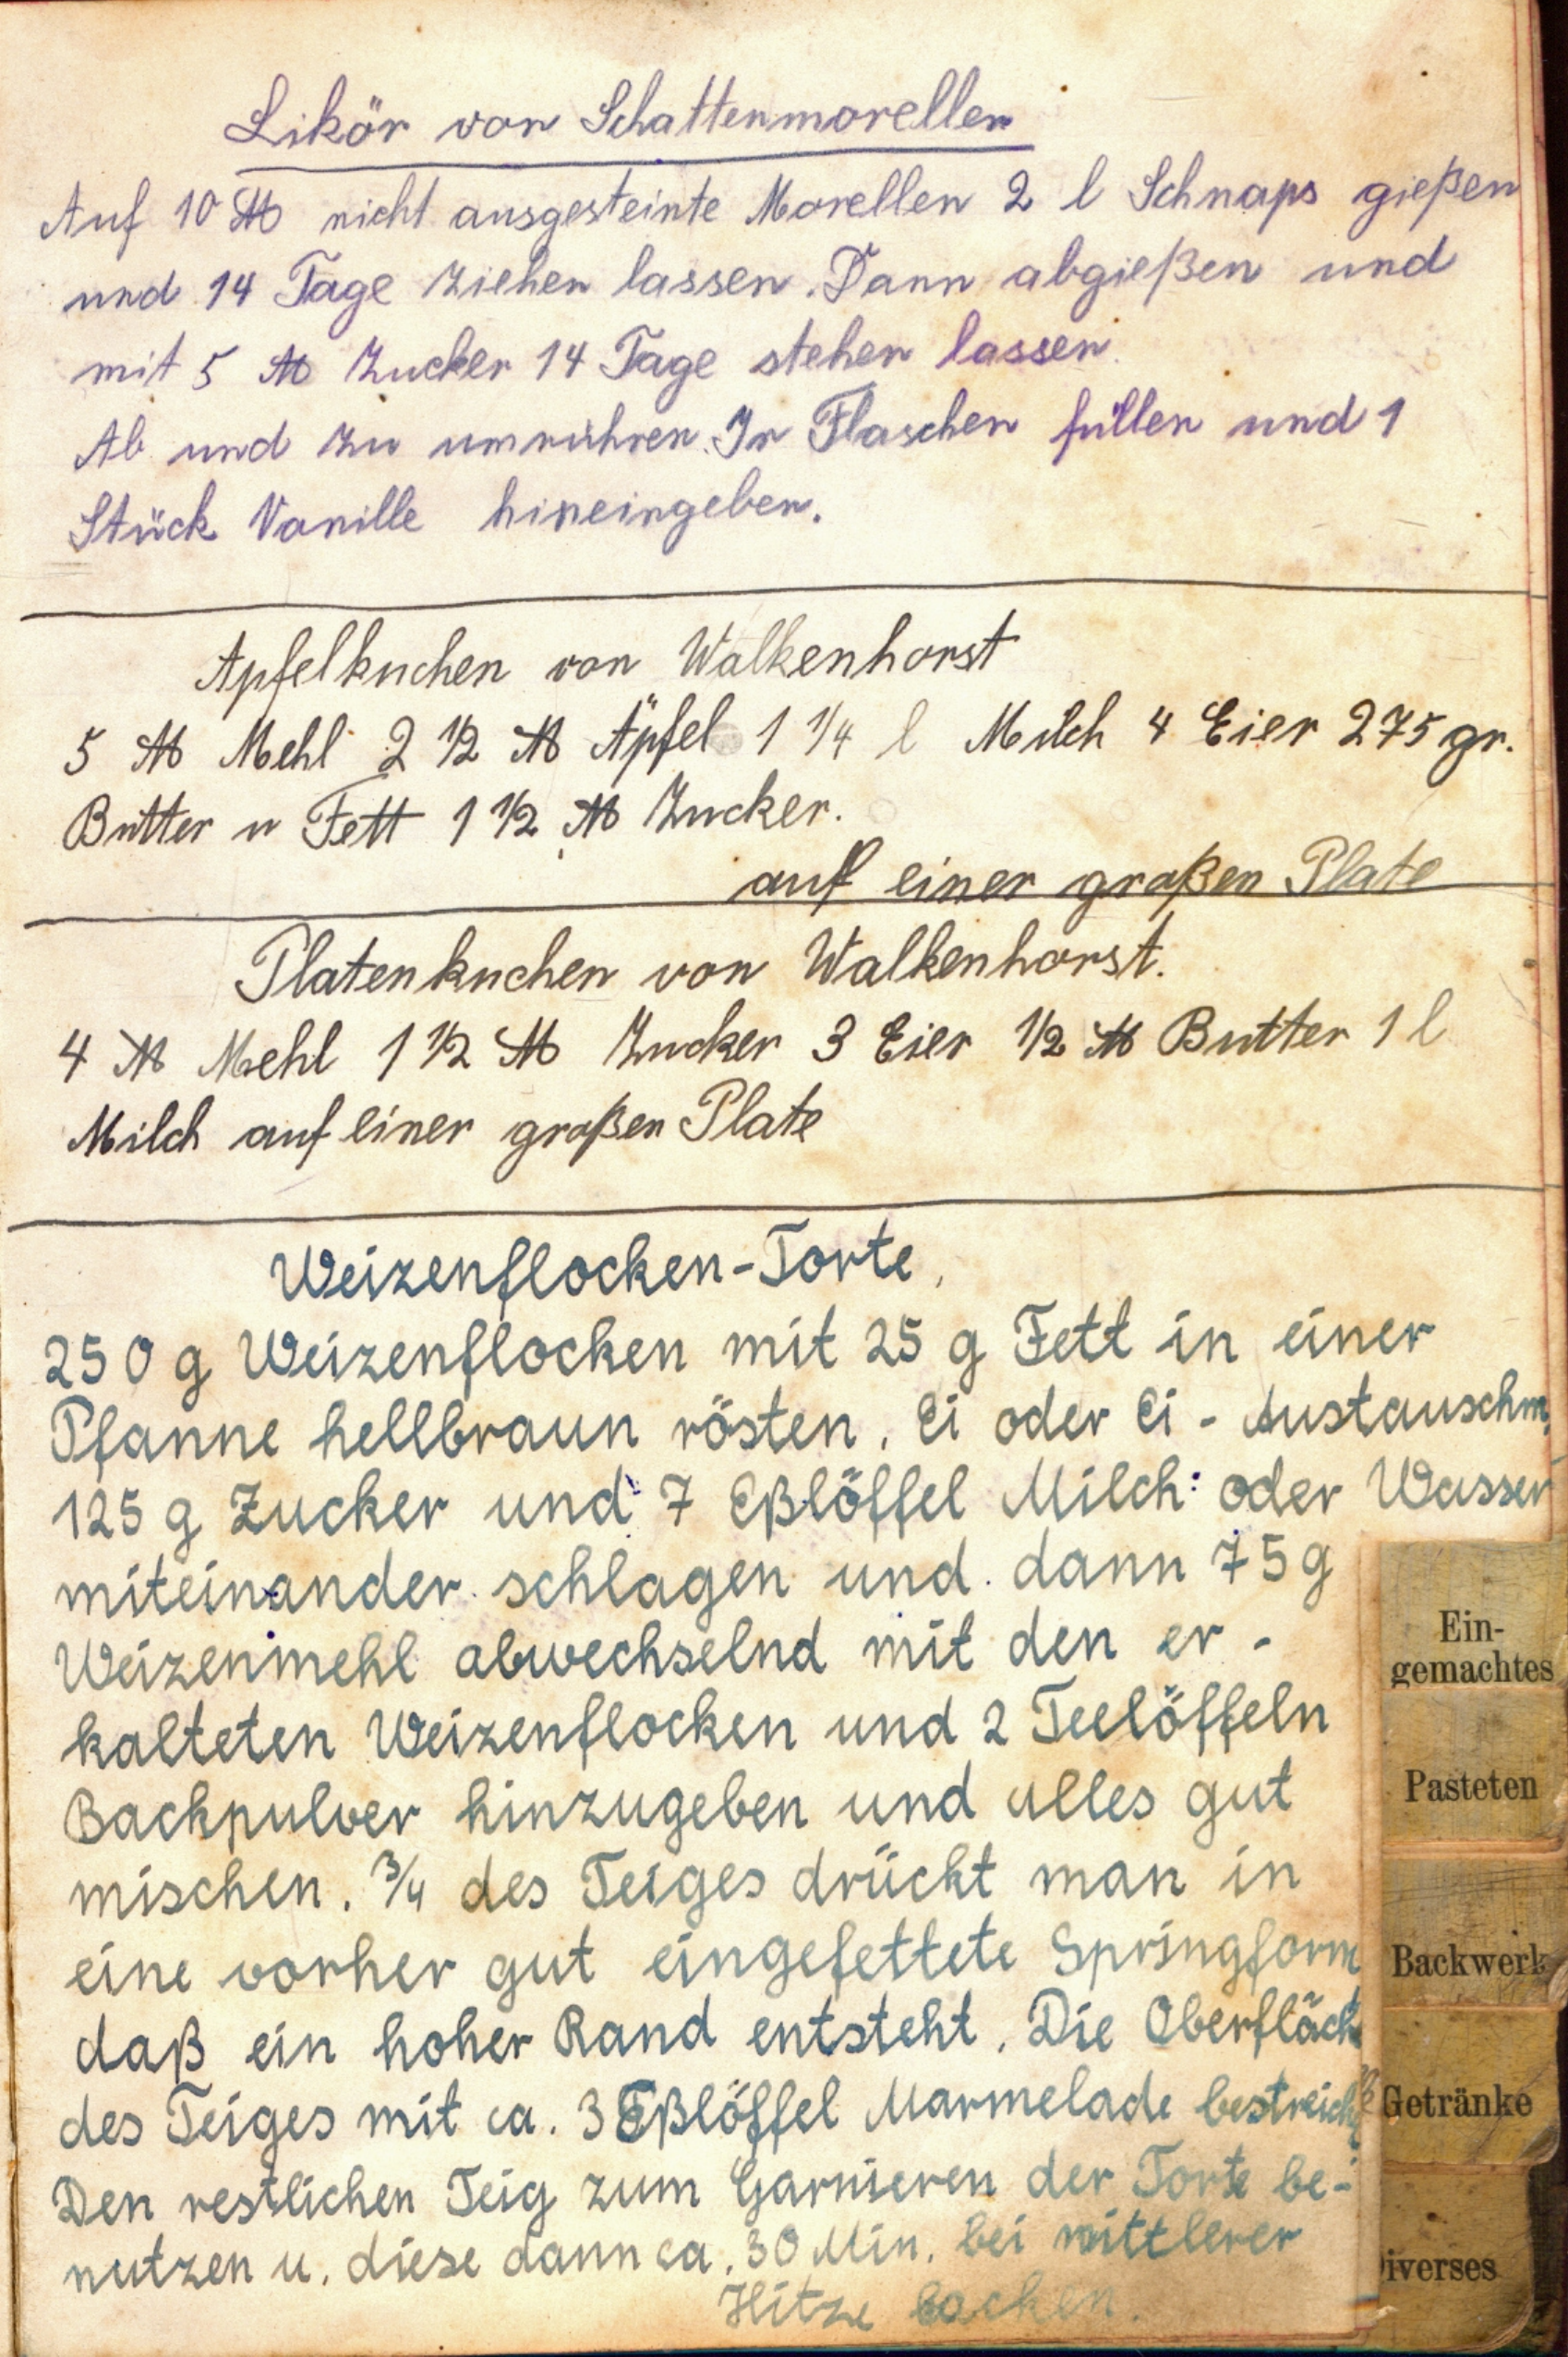 Likör von Schattenmorellen
Auf 10 ℔ nicht ausgesteinte Morellen 2 l Schnaps gießen
und 14 Tage ziehen lassen. Dann abgießen und
mit 5 ℔ Zucker 14 Tage stehen lassen.
Ab und zu umrühren. In Flaschen füllen und 1
Stück Vanille hineingeben.
Apfelkuchen von Walkenhorst
5 ℔ Mehl 2 1/2 ℔ Äpfel 1 1/4 l Milch 4 Eier 275 gr.
Butter u Fett 1 1/2 ℔ Zucker.
auf einer großen Plate
Platenkuchen von Walkenhorst.
4 ℔ Mehl 1 1/2 ℔ Zucker 3 Eier 1/2 ℔ Butter 1 l
Milch auf einer großen Plate
Weizenflocken-Torte.
250 g Weizenflocken mit 25 g Fett in einer
Pfanne hellbraun rösten. Ei oder Ei-Austauschm.
125 g Zucker und 7 Eßlöffel Milch oder Wasser
miteinander schlagen und dann 75 g
Weizenmehl abwechselnd mit den er-
kalteten Weizenflocken und 2 Teelöffeln
Backpulver hinzugeben und alles gut
mischen. 3/4 des Teiges drückt man in
eine vorher gut eingefettete Springform
daß ein hoher Rand entsteht. Die Oberfläche
des Teiges mit ca. 3 Eßlöffel Marmelade
Den restlichen Teig zum Garnieren der Torte be-
nutzen u. diese dann ca. 30 Min. bei mittlerer
Hitze backen.
Ein-
gemachtes
Pasteten
Backwerk
Getränke
Diverses